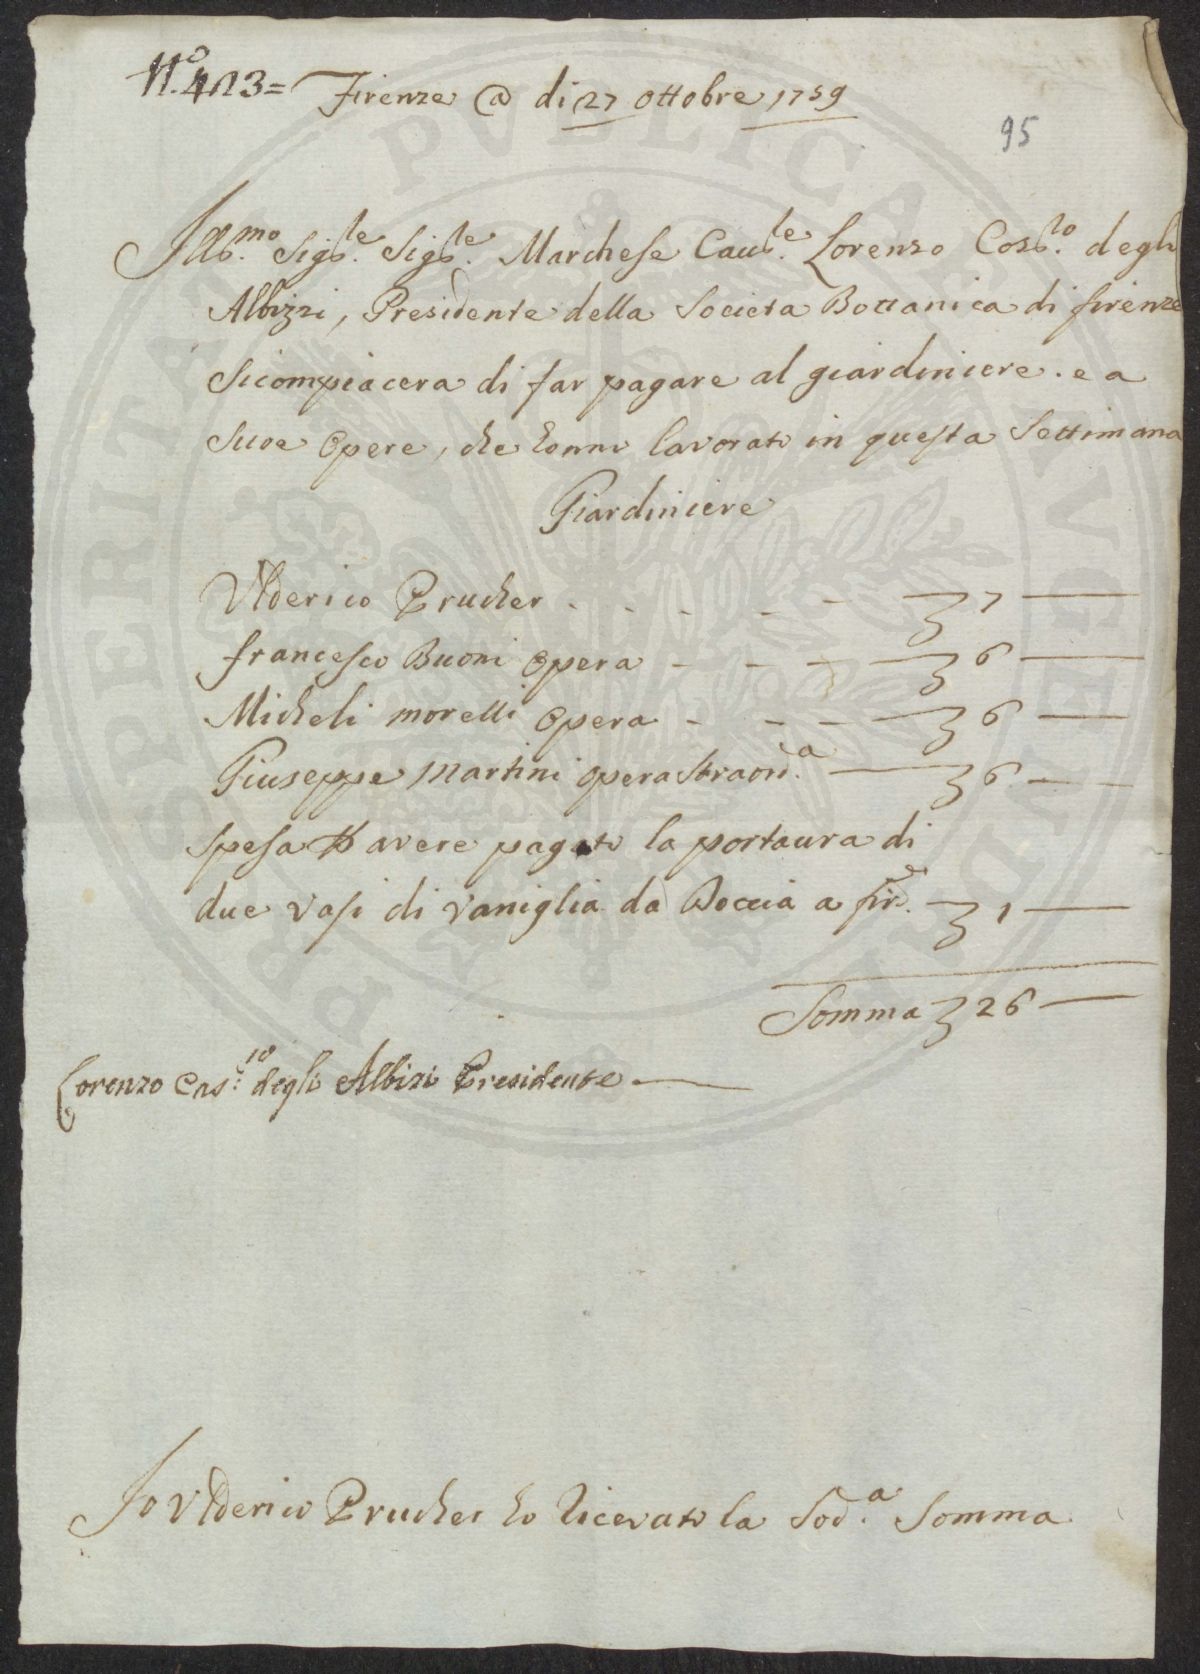 N.o 413= Firenze @ di 27 Ottobre 1759
95
Ill.mo Sig.le Sig.le Marchese Cau.le Lorenzo Cos.lo degli
Albizzi, Presidente della Societa Bottanica di firenze
Sicompiacera di far pagare al giardiniere. e a
Suoe Opere, che honno lavorato in questa Settimana
Giardiniere
Vlderico Prucher - - - - - 7
francesco Buoni Opera - - - 6
Micheli morelli Opera - - - 6
Giuseppe Martini Opera Straord.a 6
Spesa p avere pagato la portaura di
due Vasi di Vaniglia da Doccia a fir.e 1
Somma 26
Lorenzo Cas.io degli Albizi Presidente
Io Vlderico Prucher ho Ricevuto la Sod.a Somma
PUBLICAE FLORENTINAE PROSPERITATI